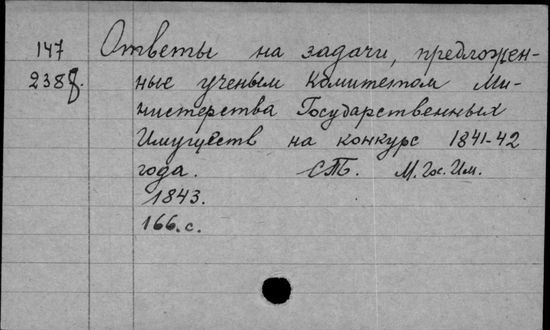 147 Ответы на задачи, предложен-
238 ные ученым Комитетом Ми-
нистерства Государственных
Имуществ на конкурс 1841-42
года. СПб. М. Гос. Им.
1843.
166.с.